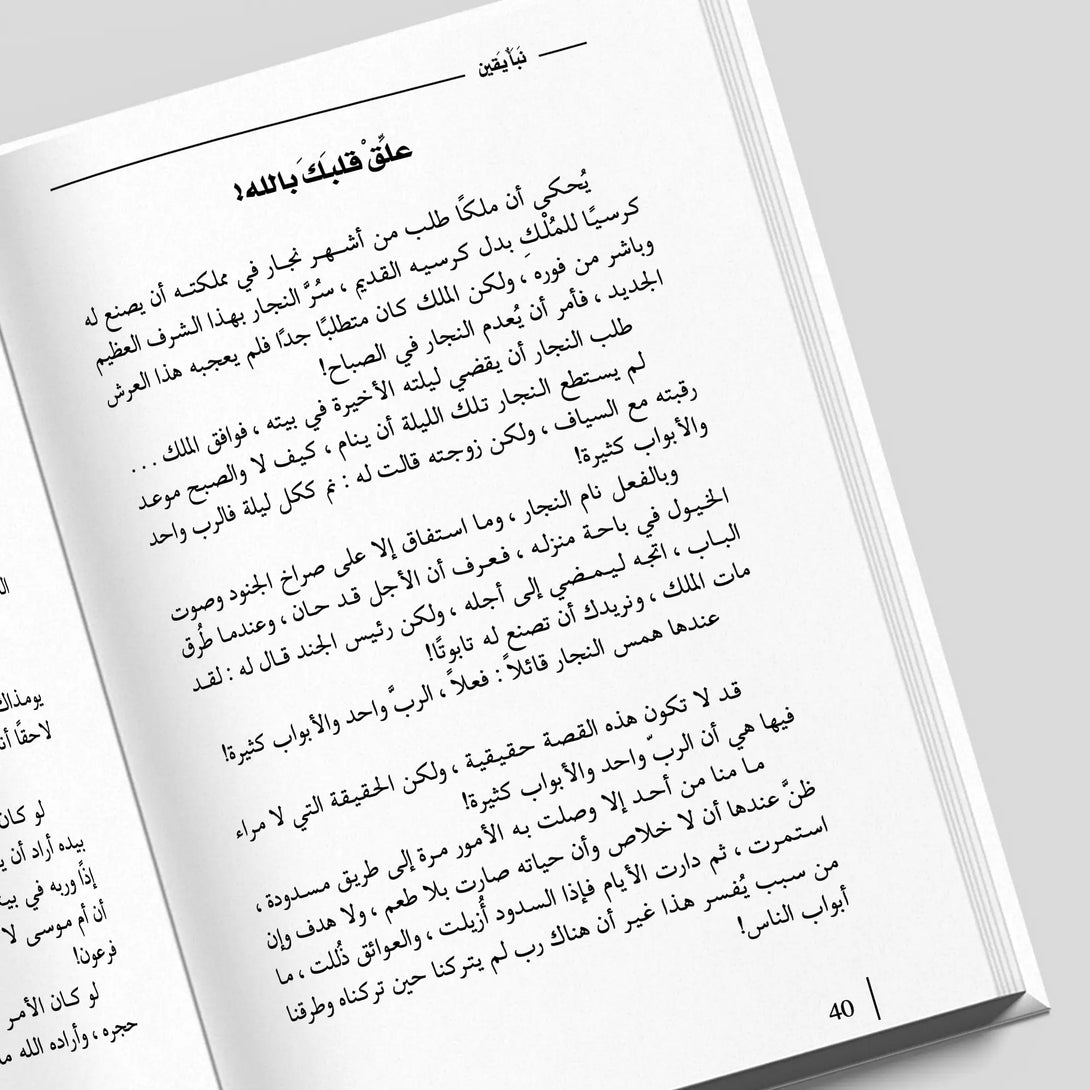 نَبَأ يَقين
علِّقْ قلبَكَ بالله!
يُحكى أن ملكًا طلب من أشهر نجار في مملكته أن يصنع له
كرسيًا للمُلْكِ بدل كرسيه القديم ، سُرَّ النجار بهذا الشرف العظيم
وباشر من فوره ، ولكن الملك كان متطلبًا جدًا فلم يعجبه هذا العرش
الجديد ، فأمر أن يُعدم النجار في الصباح!
طلب النجار أن يقضي ليلته الأخيرة في بيته ، فوافق الملك ...
لم يستطع النجار تلك الليلة أن ينام ، كيف لا والصبح موعد
رقبته مع السياف ، ولكن زوجته قالت له : نم ككل ليلة فالرب واحد
والأبواب كثيرة!
وبالفعل نام النجار ، وما استفاق إلا على صراخ الجنود وصوت
الخيول في باحة منزله ، فعرف أن الأجل قد حان ، وعندما طُرق
الباب ، اتجه ليمضي إلى أجله ، ولكن رئيس الجند قال له : لقد
مات الملك ، ونريدك أن تصنع له تابوتًا!
عندها همس النجار قائلاً : فعلاً ، الربَّ واحد والأبواب كثيرة!
قد لا تكون هذه القصة حقيقية ، ولكن الحقيقة التي لا مراء
فيها هي أن الربّ واحد والأبواب كثيرة!
ما منا من أحد إلا وصلت به الأمور مرة إلى طريق مسدودة ،
ظنَّ عندها أن لا خلاص وأن حياته صارت بلا طعم ، ولا هدف وإن
استمرت ، ثم دارت الأيام فإذا السدود أُزيلت ، والعوائق ذُللت ، ما
من سبب يُفسر هذا غير أن هناك رب لم يتركنا حين تركناه وطرقنا
أبواب الناس!
40
يومذاك
لاحقًا
لو كان
بيده أراد أن
إذًا وربه في
أن أم موسى لا
فرعون!
لو كان الأمر
حجره ، وأراده الله